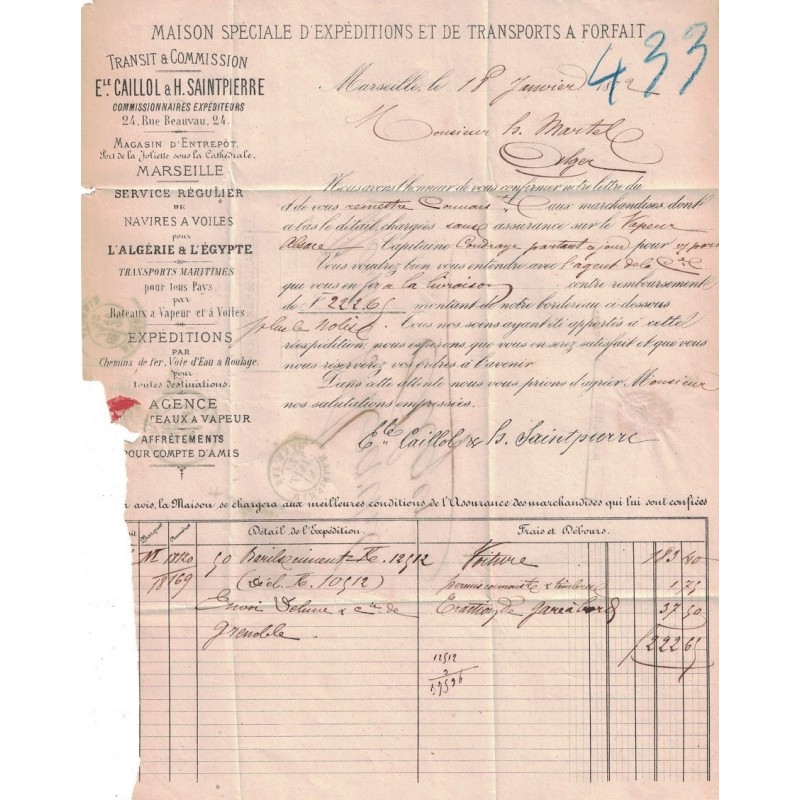 MAISON SPÉCIALE D'EXPÉDITIONS ET DE TRANSPORTS A FORFAIT
433
TRANSIT & COMMISSION
E.LE CAILLOL & H. SAINTPIERRE
COMMISSIONNAIRES EXPÉDITEURS
24, Rue Beauvau, 24.
MAGASIN D'ENTREPÔT,
Port de la Joliette sous la Cathédrale,
MARSEILLE
SERVICE RÉGULIER
DE
NAVIRES A VOILES
pour
L'ALGÉRIE & L'ÉGYPTE
TRANSPORTS MARITIMES
pour tous Pays
par
Bateaux à Vapeur et à Voiles
EXPÉDITIONS
PAR
Chemins de fer, Voie d'Eau & Roulage,
pour
toutes destinations.
AGENCE
TEAUX A VAPEUR
AFFRÈTEMENTS
POUR COMPTE D'AMIS
Marseille, le 18 Janvier 1872
Monsieur h. Martel
Alger
Nous avons l'honneur de vous confirmer notre lettre du
& de vous remettre connais.t aux marchandises dont
a bas le détail, chargés sans assurance sur le Vapeur
Alsace Capitaine partant à jour pour
Vous voudrez bien vous entendre avec l'agent de la Cie
qui vous en fera la livraison contre remboursement
de F 222.65 montant de notre bordereau ci-dessous
plus le nolis. Tous nos soins ayant été apportés à cette
réexpédition, nous espérons que vous en serez satisfait et que vous
nous réserverez vos ordres à l'avenir.
Dans cette attente nous vous prions d'agréer, Monsieur
nos salutations empressées.
E.le Caillol & h. Saintpierre
r avis, la Maison se chargera aux meilleures conditions de l'Assurance des marchandises qui lui sont confiées
Marques Numéros Détail de l'Expédition. Frais et Débours.
M 18120 50 Barils ciment K. 12512 Voiture 183 40
18169 (décl. K. 10512) permis connais.t & timbres 1 75
Envoi Delune & cie de Traction de gare à bord 37 50
Grenoble. 222 65
12512